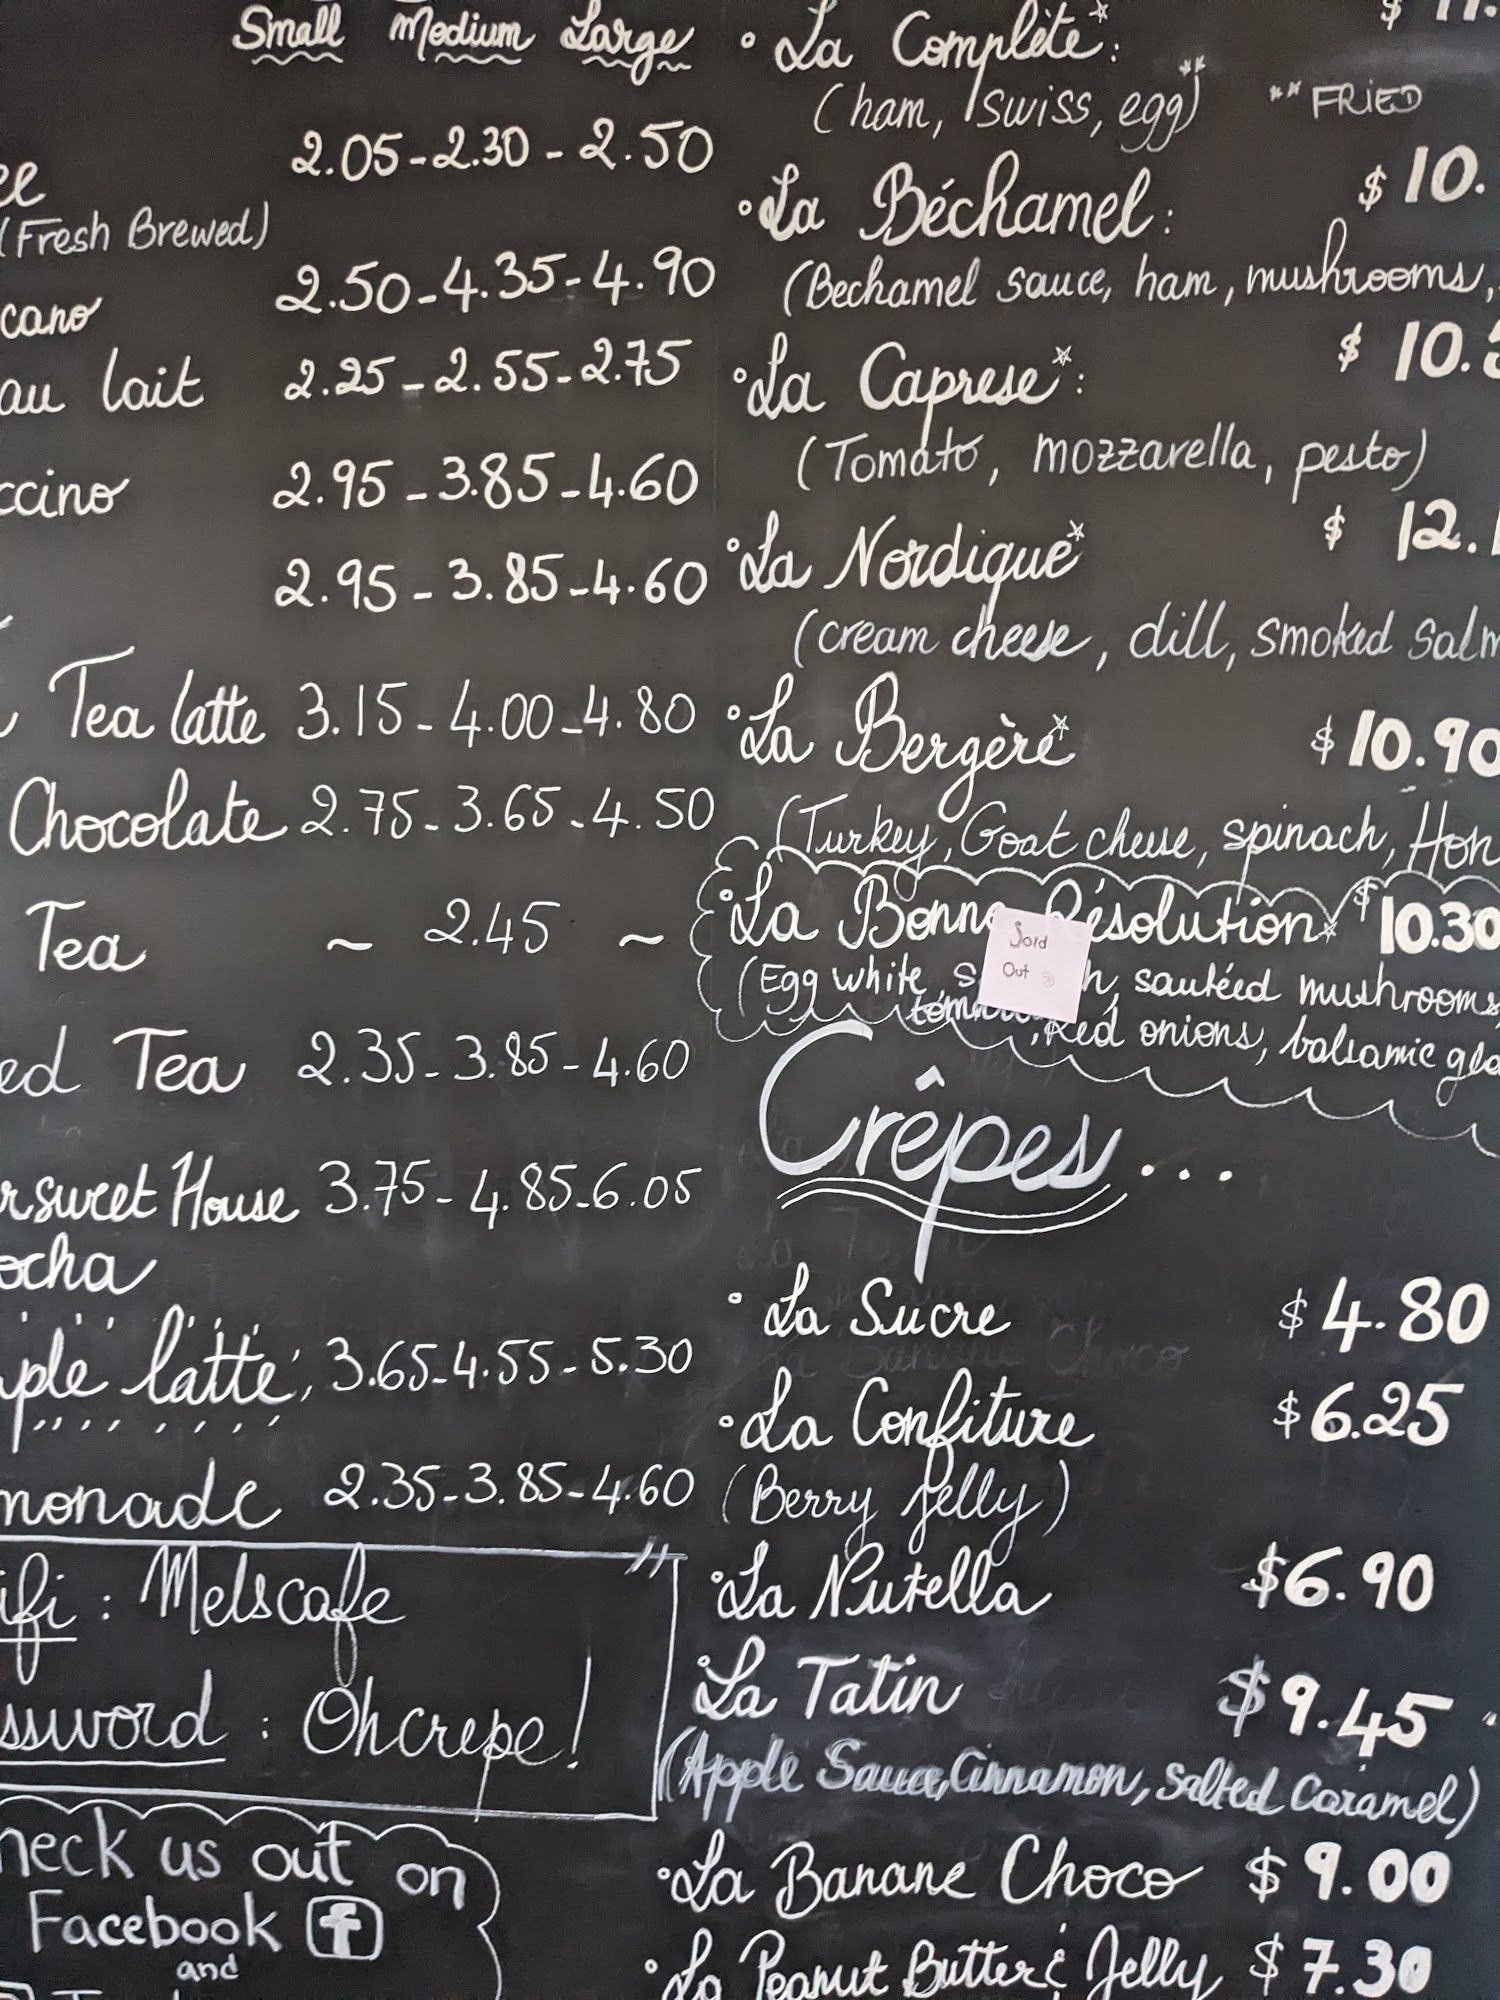 Small Medium Large
2.05-2.30-2.50
(Fresh Brewed)
cano 2.50-4.35-4.90
au lait 2.25-2.55-2.75
ccino 2.95-3.85-4.60
2.95-3.85-4.60
Tea latte 3.15-4.00-4.80
Chocolate 2.75-3.65-4.50
Tea ~ 2.45 ~
ed Tea 2.35-3.85-4.60
rsweet House 3.75-4.85-6.05
ocha
ple latte 3.65-4.55-5.30
monade 2.35-3.85-4.60
ifi : Melscafe
ssword : Ohcrepe!
heck us out on
Facebook f
and
• La Complète*: $ 11.
(ham, swiss, egg**) **FRIED
• La Béchamel: $ 10.
(Bechamel sauce, ham, mushrooms,
• La Caprese*: $ 10.
(Tomato, mozzarella, pesto)
• La Nordique* $ 12.
(cream cheese, dill, smoked Salm
• La Bergère* $ 10.90
(Turkey, Goat cheese, spinach, Hon
• La Bonne Résolution* $ 10.30
Sold
Out ☹
(Egg white, s h, sautéed mushrooms,
tom , Red onions, balsamic gla
Crêpes...
• La Sucre $ 4.80
• La Confiture $ 6.25
(Berry Jelly)
• La Nutella $6.90
• La Tatin $9.45
(Apple Sauce, Cinnamon, Salted Caramel)
• La Banane Choco $ 9.00
• La Peanut Butter & Jelly $ 7.30